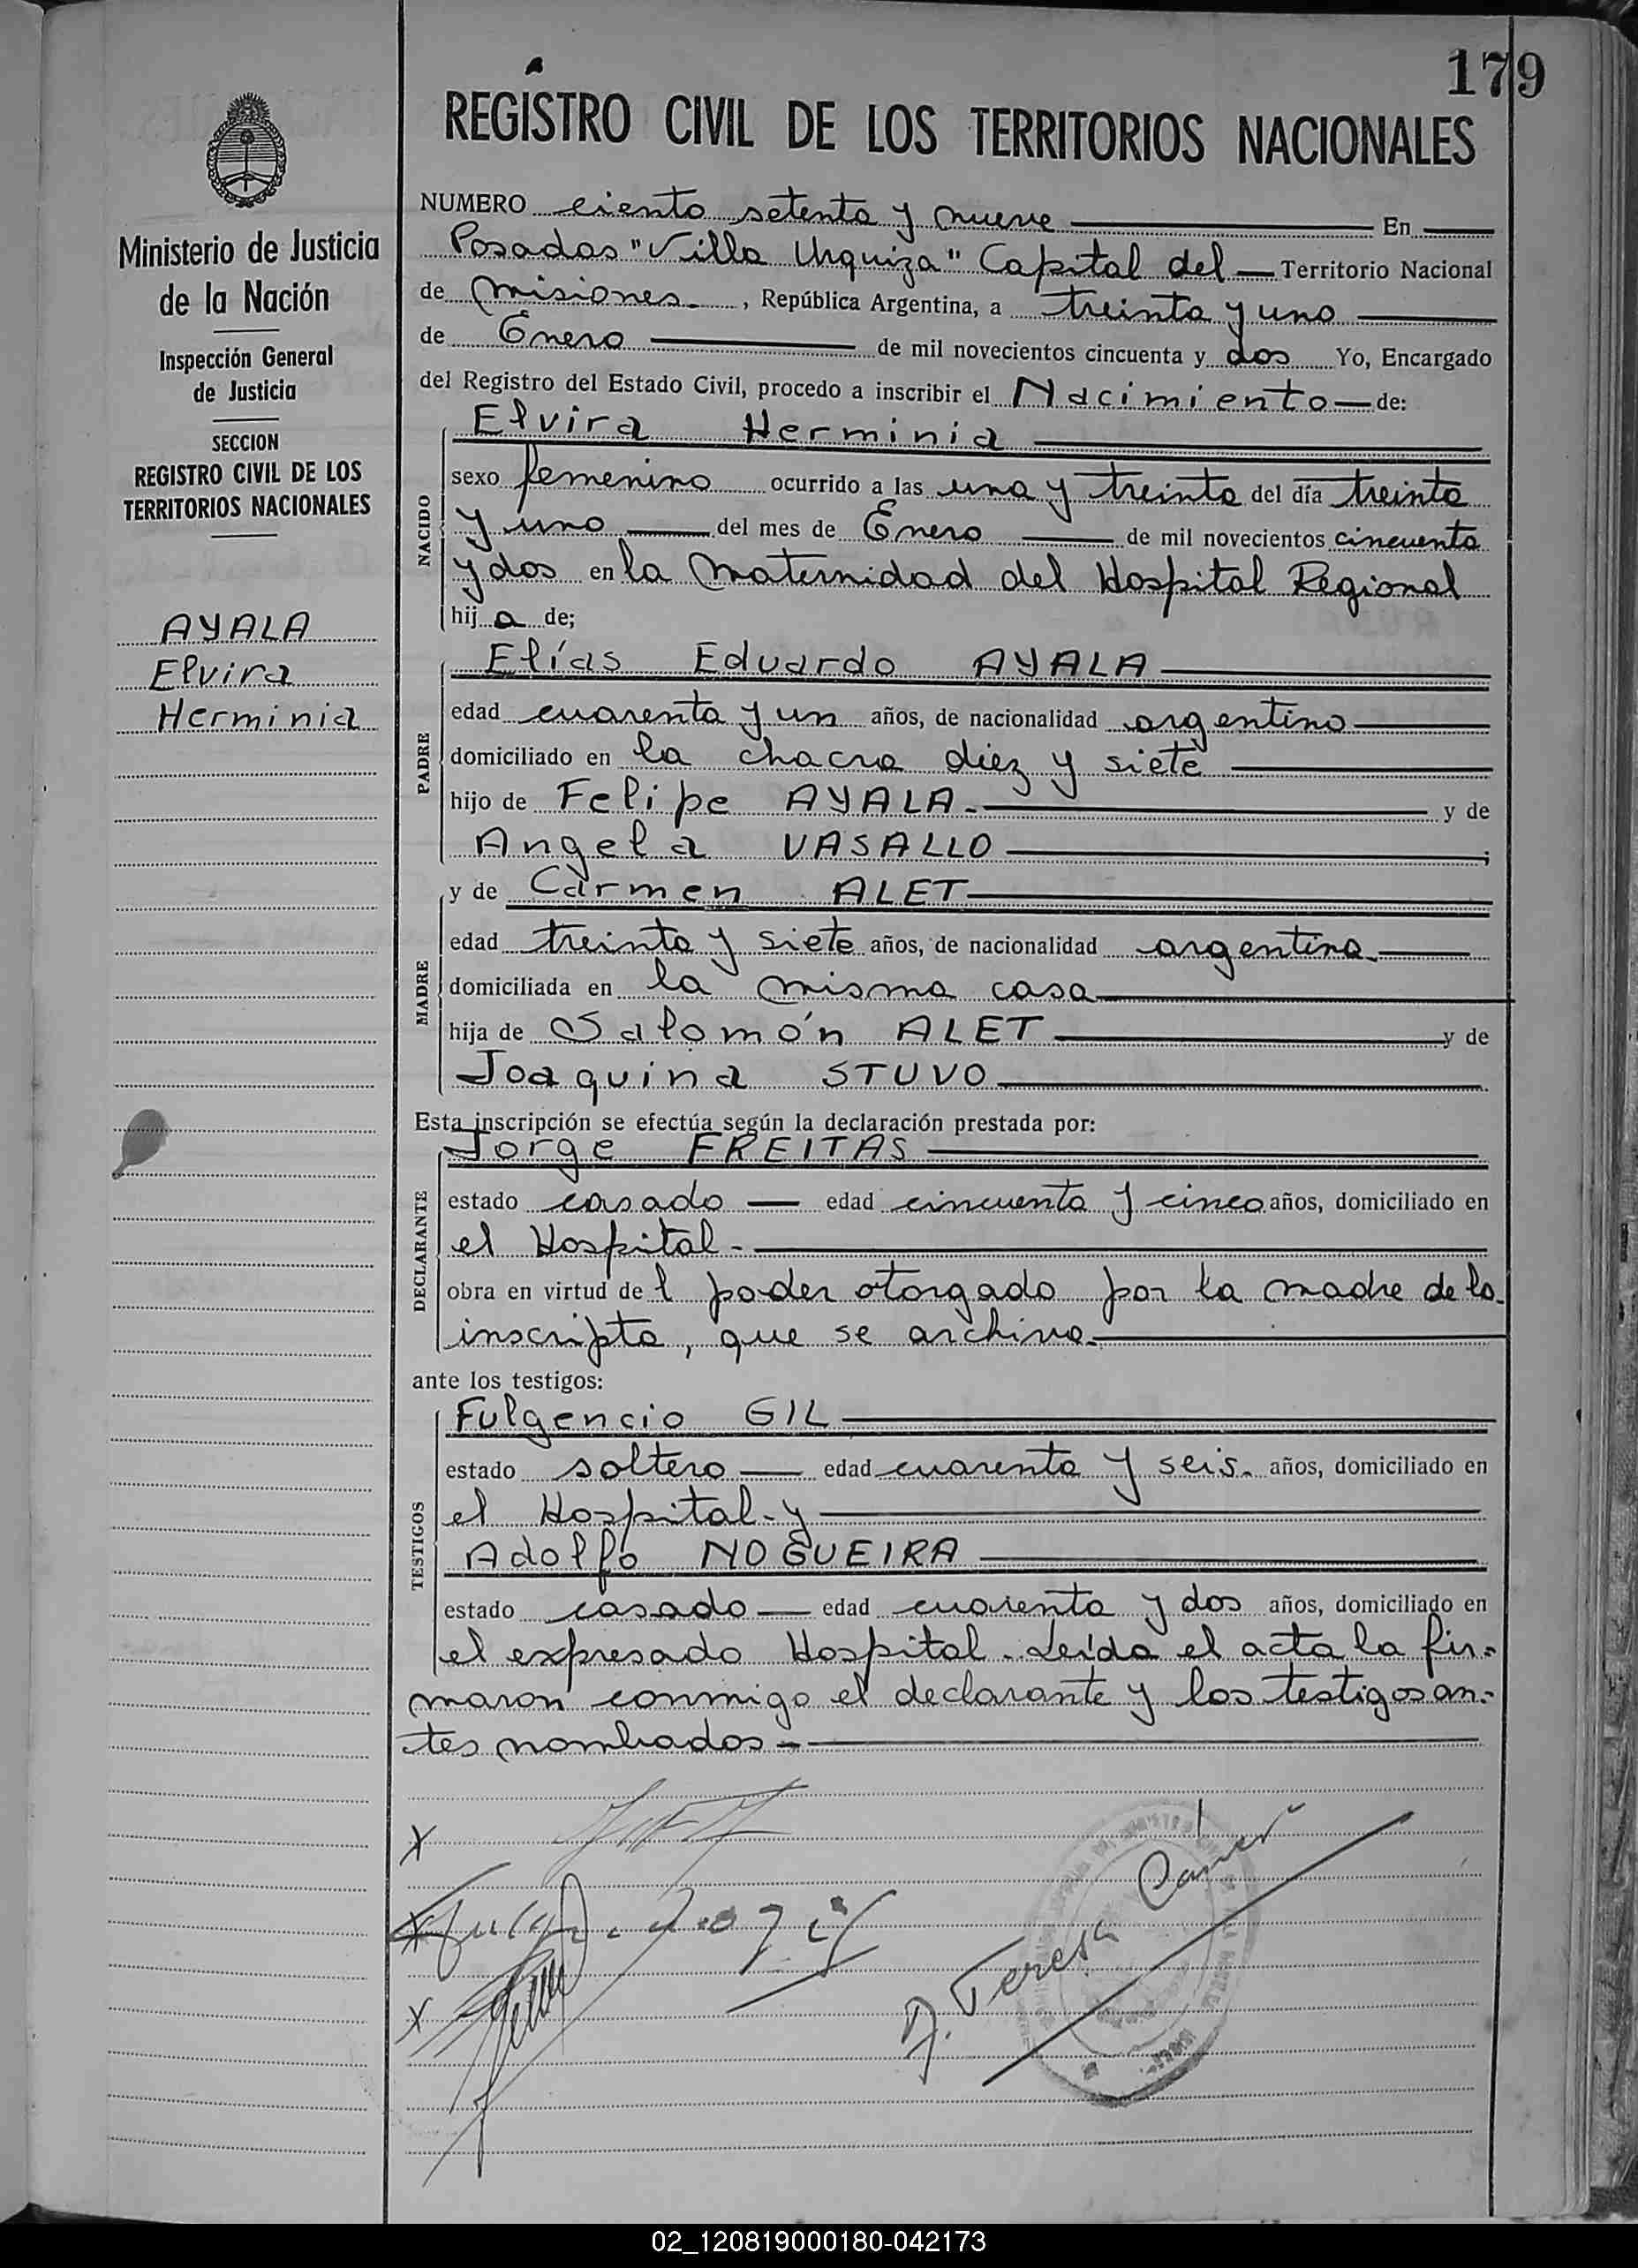 179
REGISTRO CIVIL DE LOS TERRITORIOS NACIONALES
Ministerio de Justicia
de la Nación
Inspección General
de Justicia
SECCION
REGISTRO CIVIL DE LOS
TERRITORIOS NACIONALES
AYALA
Elvira
Herminia
NUMERO ciento setenta y nueve En
Posadas "Villa Urquiza" Capital del Territorio Nacional
de Misiones , República Argentina, a treinta y uno
de Enero de mil novecientos cincuenta y dos Yo, Encargado
del Registro del Estado Civil, procedo a inscribir el Nacimiento de:
NACIDO
Elvira Herminia
sexo femenino ocurrido a las una y treinta del día treinta
y uno del mes de Enero de mil novecientos cincuenta
y dos en la Maternidad del Hospital Regional
hij a de;
PADRE
Elías Eduardo AYALA
edad cuarenta y un años, de nacionalidad argentino
domiciliado en la chacra diez y siete
hijo de Felipe AYALA.- y de
Angela VASALLO ;
MADRE
y de Carmen ALET
edad treinta y siete años, de nacionalidad argentina.
domiciliada en la misma casa
hija de Salomón ALET y de
Joaquina STUVO
Esta inscripción se efectúa según la declaración prestada por:
DECLARANTE
Jorge FREITAS
estado casado — edad cincuenta y cinco años, domiciliado en
el Hospital.-
obra en virtud de l poder otorgado por la madre de la
inscripta, que se archiva.
ante los testigos:
TESTIGOS
Fulgencio GIL
estado soltero — edad cuarenta y seis. años, domiciliado en
el Hospital.- y
Adolfo NOGUEIRA
estado casado — edad cuarenta y dos años, domiciliado en
el expresado Hospital. Leída el acta la fir-
maron conmigo el declarante y los testigos an-
tes nombrados.-
X
X
X
Teresa
02_120819000180-042173